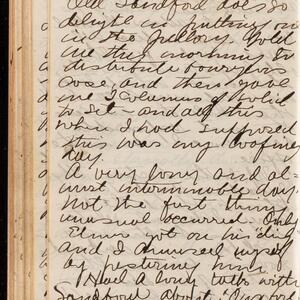 Old Sandford does so
delight in putting one
in the pillory. Told
me this morning to
distribute bourgeois
case, and then gave
me 1 column of solid
to set - and all this
when I had supposed
this was my loafing
day.
A very long and al-
most interminable day.
Not the first thing
unusual occurred. Old
got on his "dig"
and I amused myself
by pestering him.
I had a long talk with
Sandford about